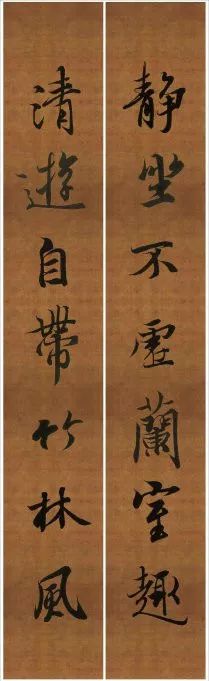 静坐不虚蘭室趣
清遊自帶竹林風